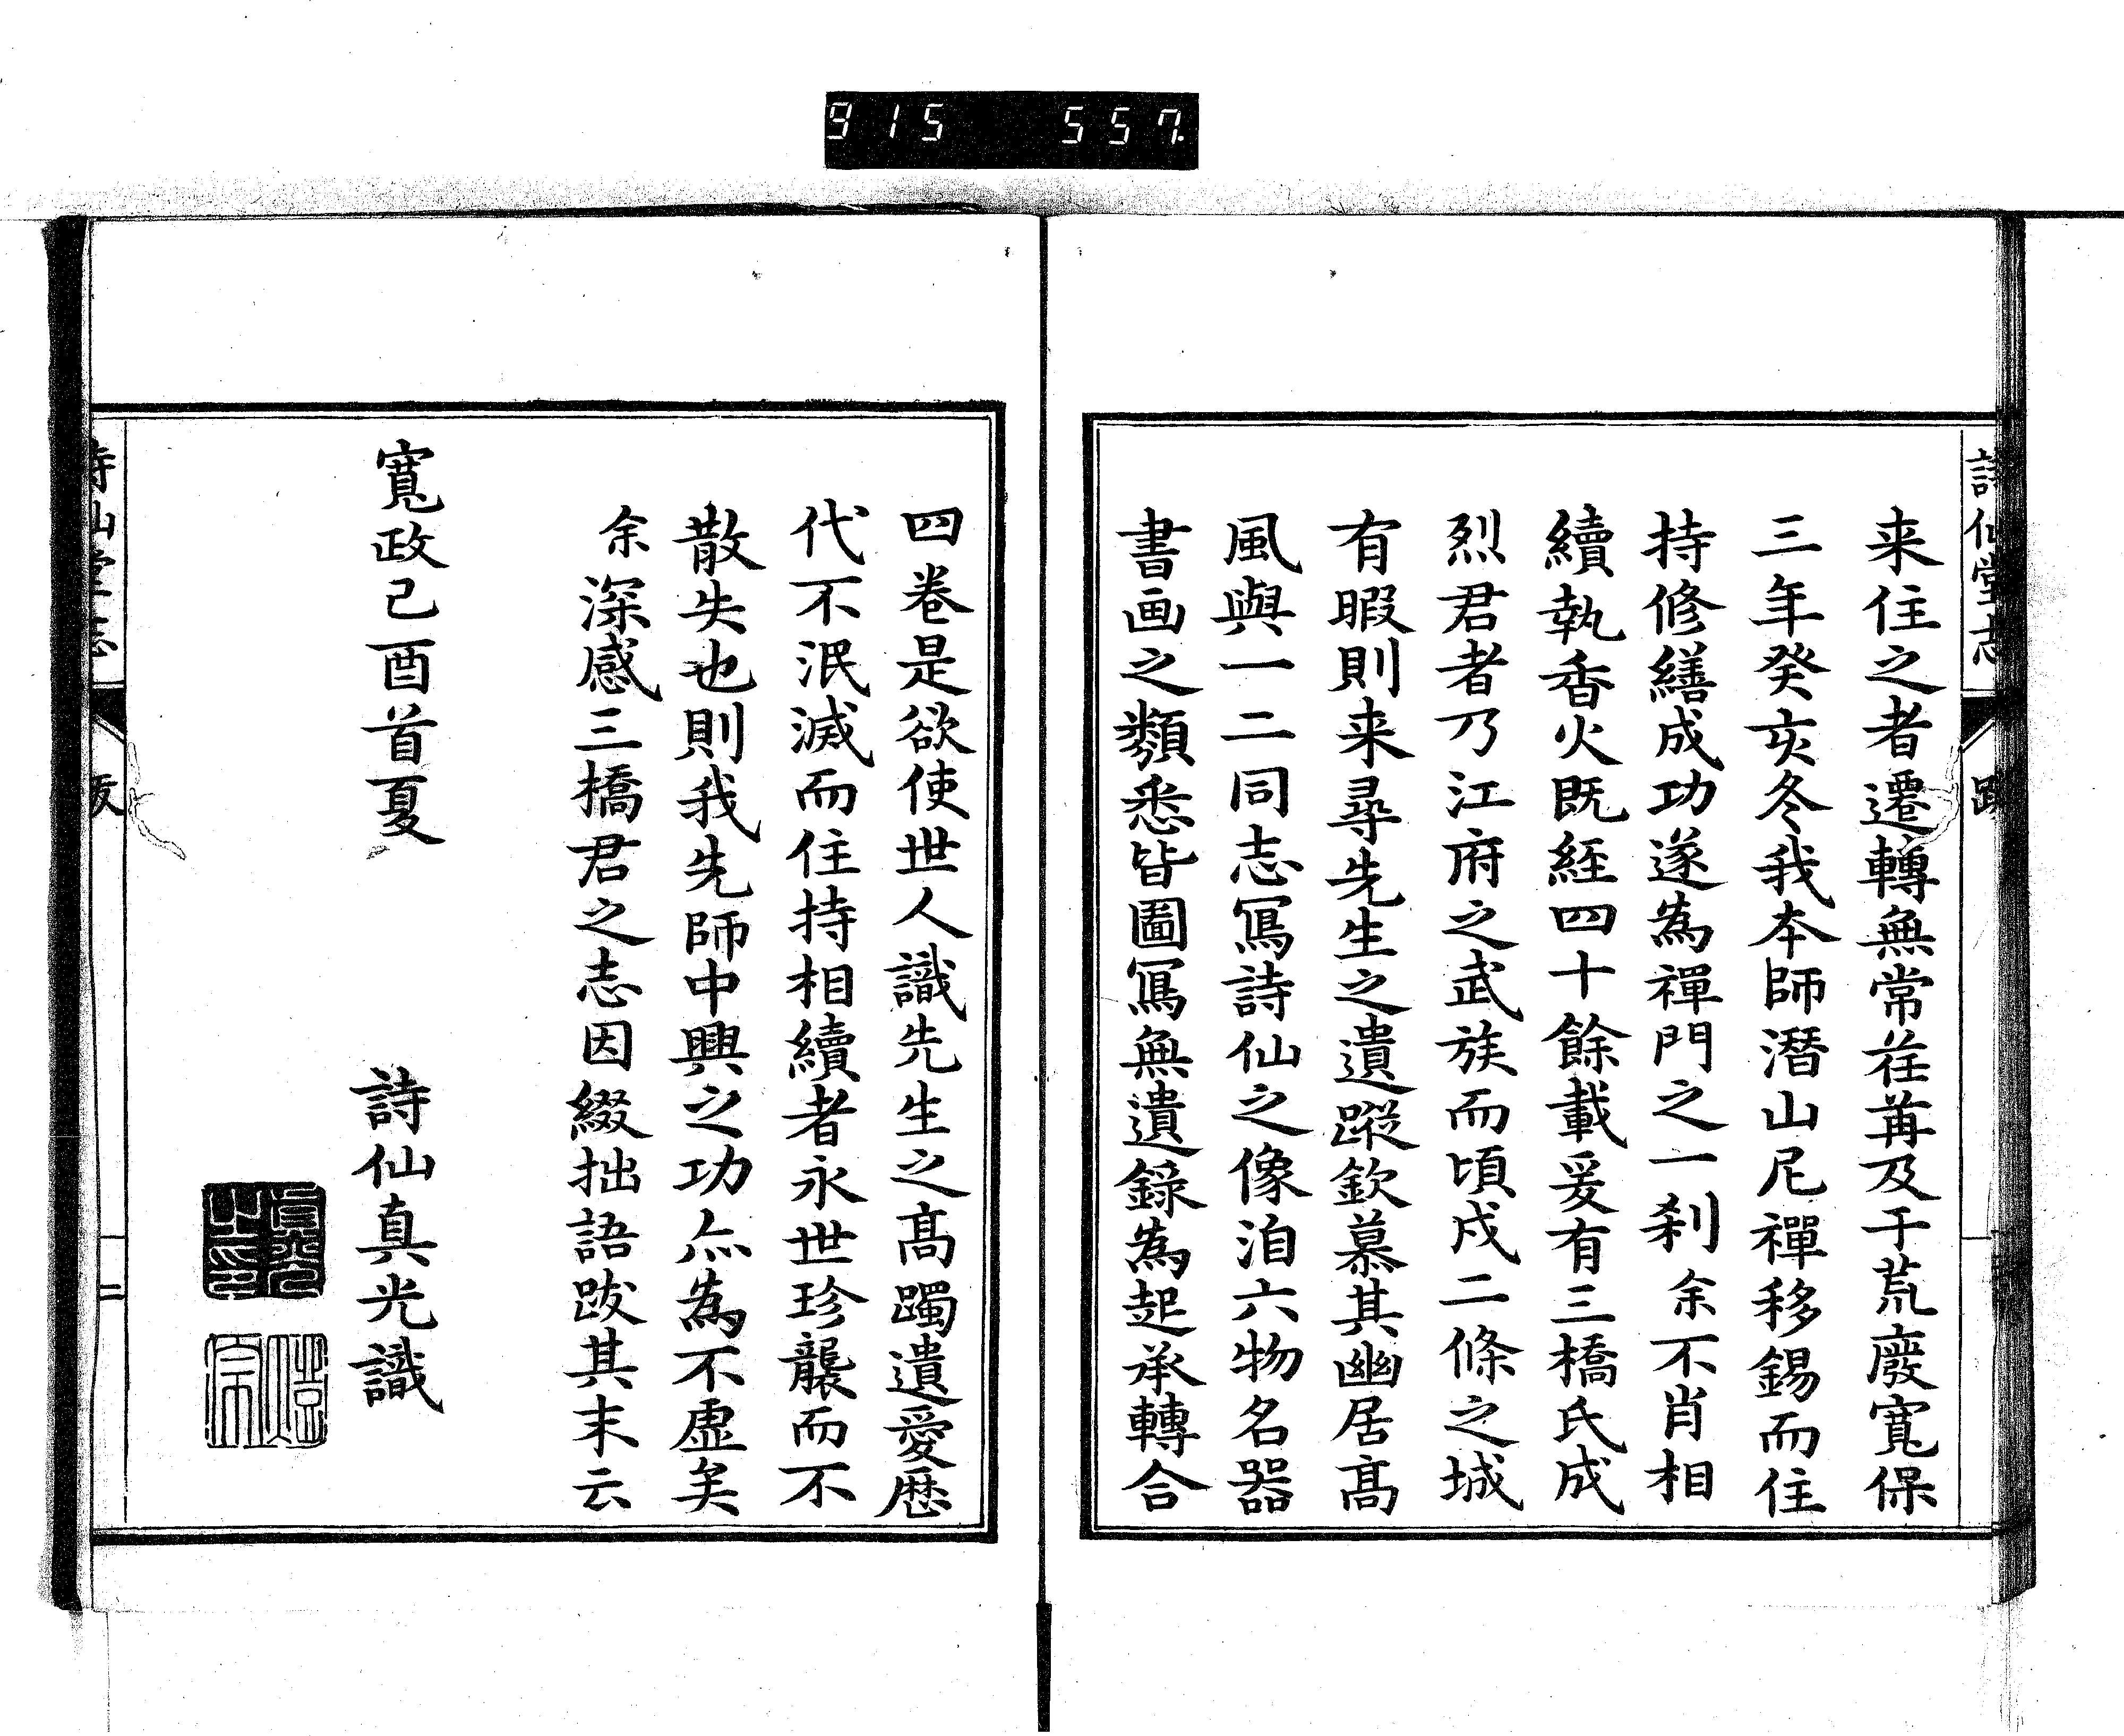 915 557
詩仙堂志 跋
来住之者遷轉無常荏苒及于荒廢寬保
三年癸亥冬我本師潛山尼禪移錫而住
持修繕成功遂為禪門之一刹余不肖相
續執香火既經四十餘載爰有三橋氏成
烈君者乃江府之武族而頃戍二條之城
有暇則来尋先生之遺蹤欽慕其幽居髙
風與一二同志冩詩仙之像洎六物名器
書画之類悉皆圖冩無遺錄為起承轉合
四卷是欲使世人識先生之髙躅遺愛歷
代不泯滅而住持相續者永世珍襲而不
散失也則我先師中興之功亦為不虚矣
余深感三橋君之志因綴拙語跋其末云
寬政己酉首夏
詩仙真光識
詩仙堂志 跋 二